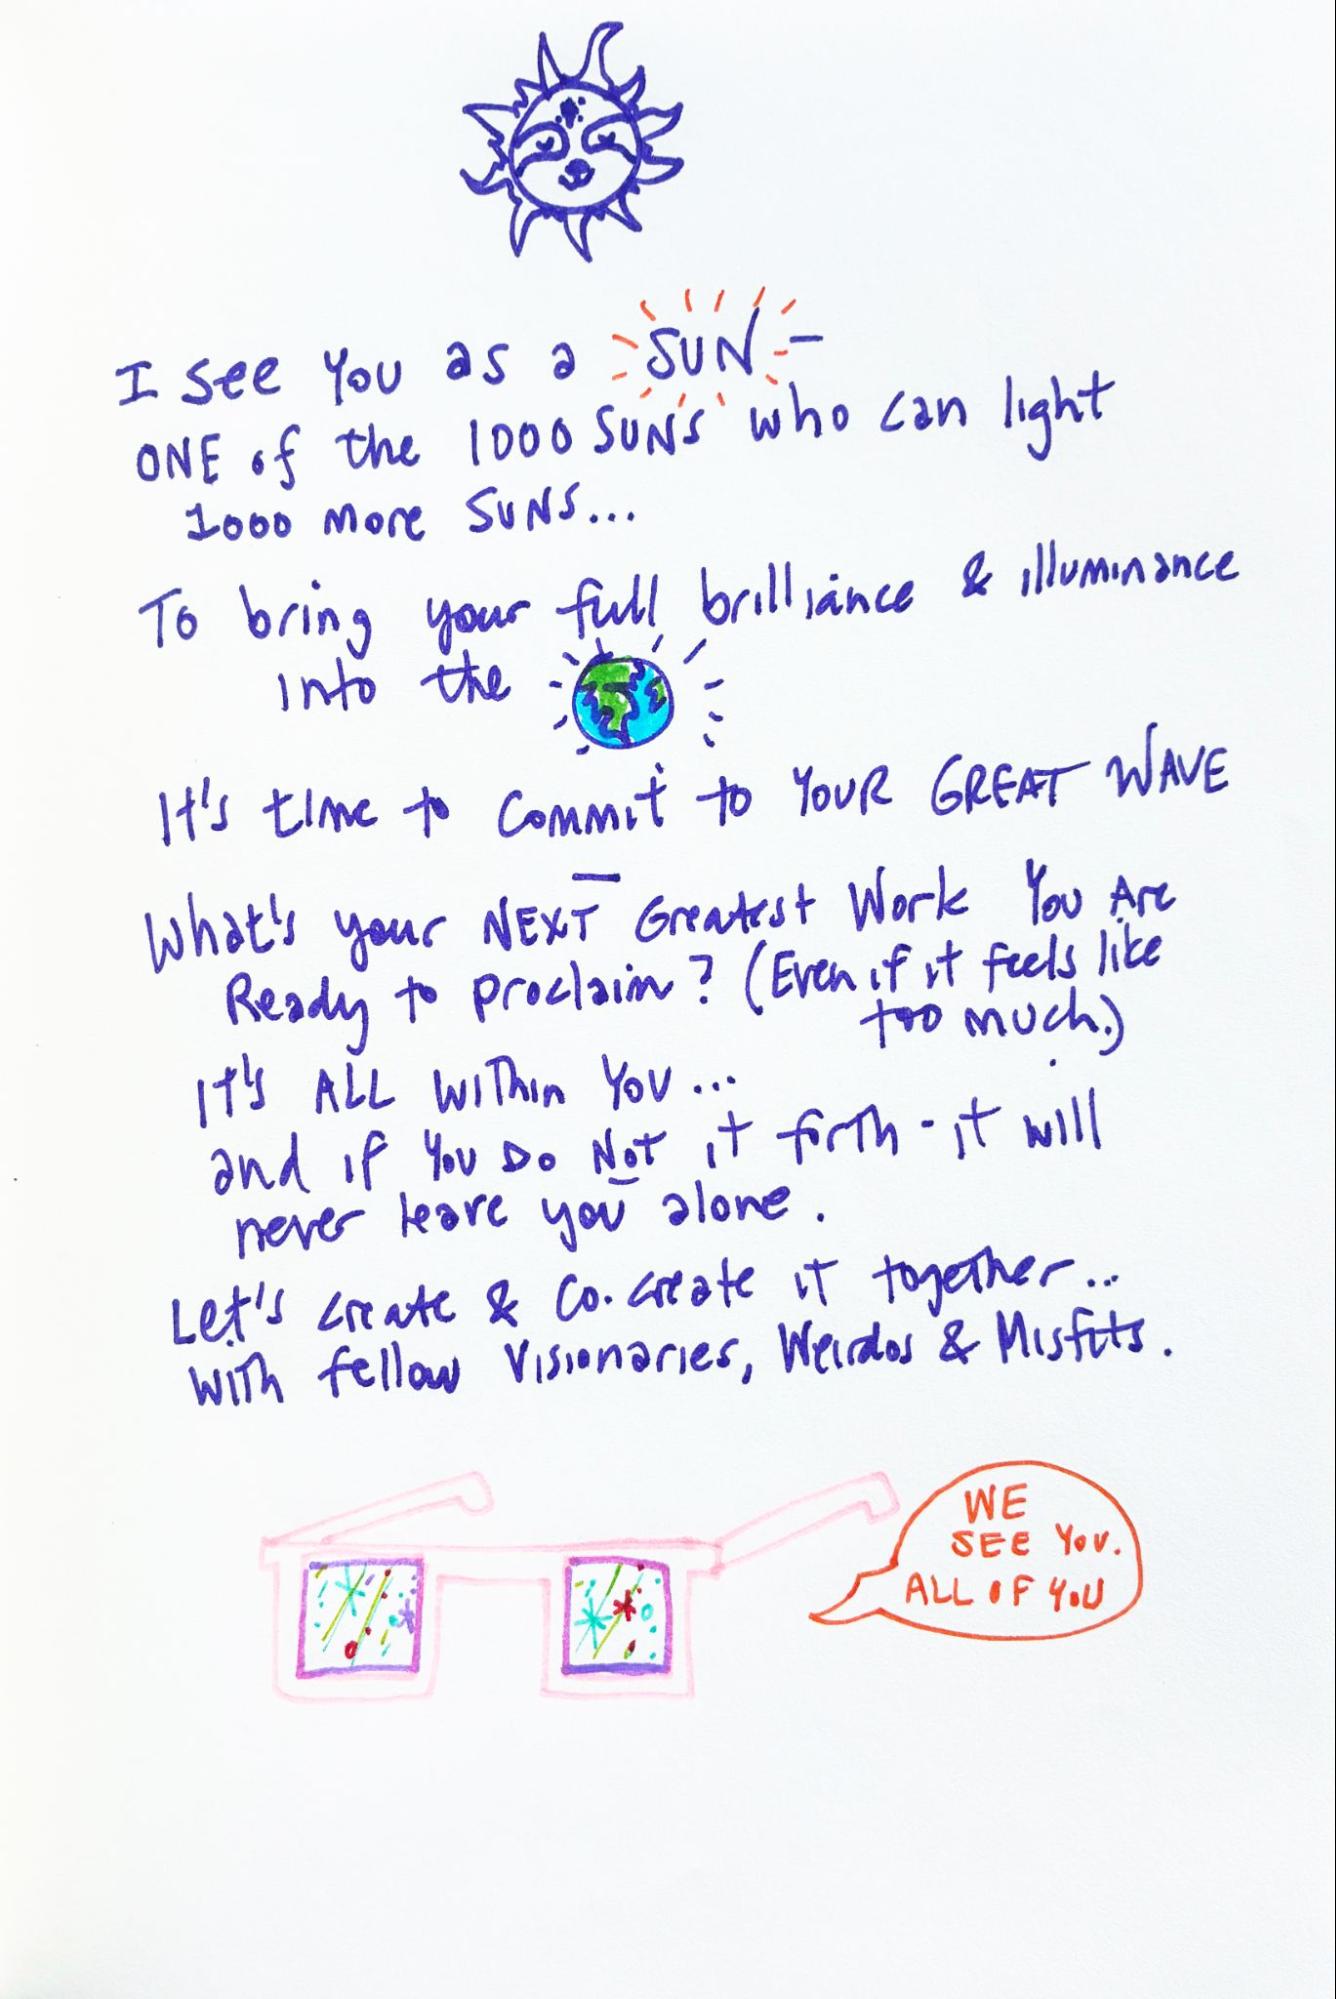 I see You as a SUN -
ONE of the 1000 SUNS who can light
1000 more SUNS...
To bring your full brilliance & illuminance
into the
It's time to Commit to YOUR GREAT WAVE
What's your NEXT Greatest Work You Are
Ready to proclaim? (Even if it feels like
too much.)
It's ALL WiThin You...
and if You Do NoT it forth - it will
never leave you alone.
Let's create & Co-create it together...
with fellow Visionaries, Weirdos & Misfits.
WE
SEE You.
ALL OF YOU